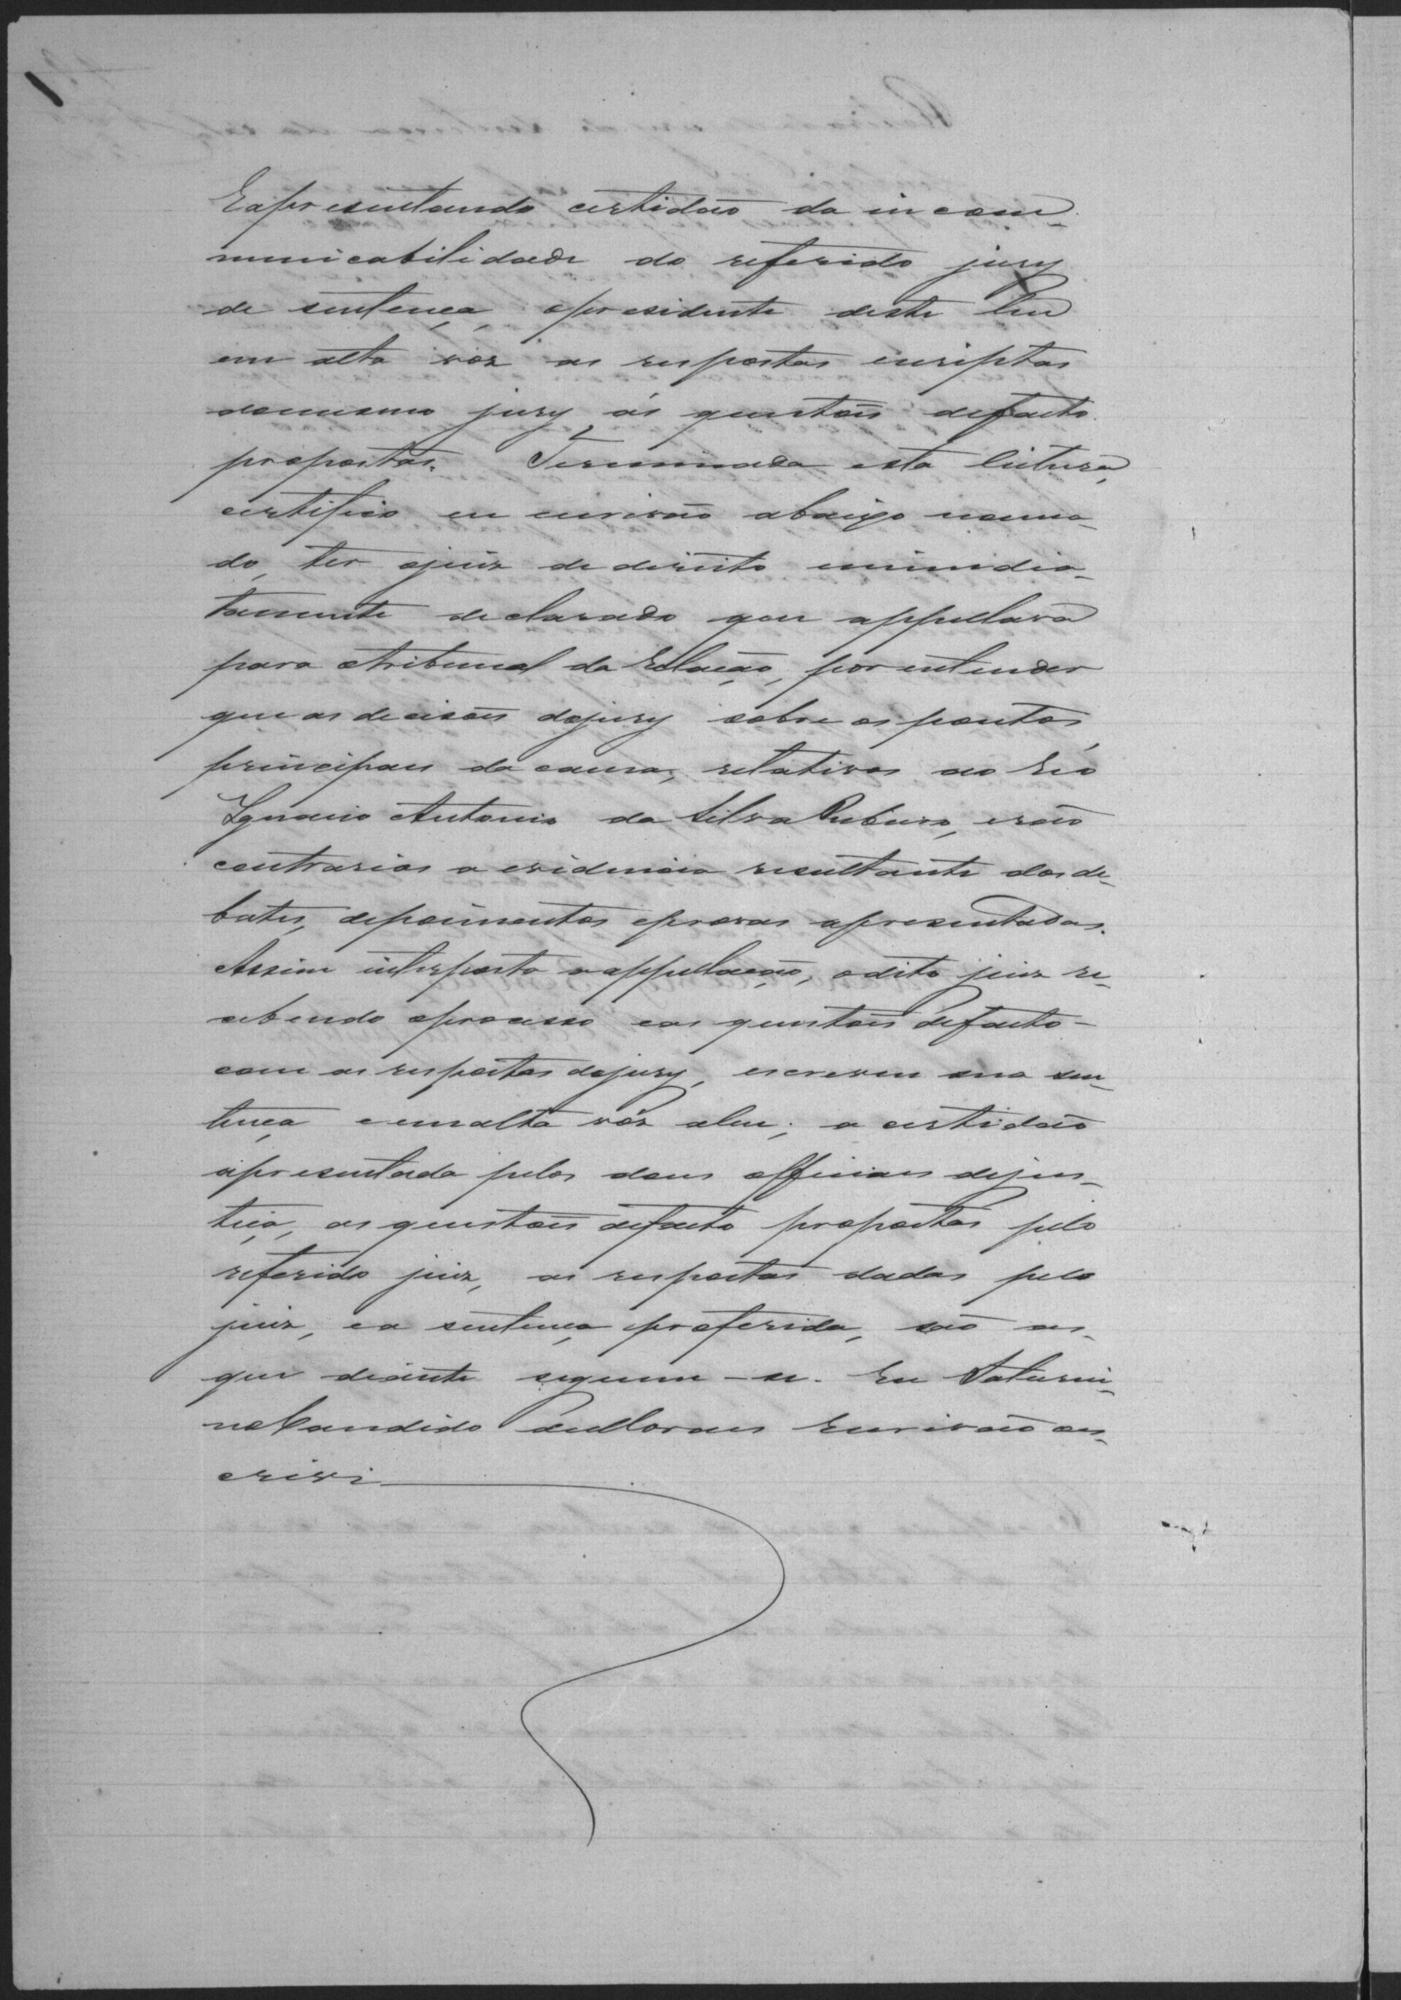 E apresentando certidão da incom-
municabilidade do referido jury
de sentença, o presidente deste leu
em alta voz as respostas escriptas
do mesmo jury, ás questões de facto
propostas. Terminada esta leitura,
certifico eu escrivão abaixo nomea-
do, ter o juiz de direito immedia-
tamente declarado que appellava
para o tribunal da Relação, por entender
que as decisões do jury sobre os pontos
principaes da causa, relativos ao réo
Ignacio Antonio da Silva, erão
contrarias a evidencia resultante dos de-
bates, depoimentos e provas apresentadas.
Assim interposta a appellação, o dito juiz re-
cebendo o processo e as questões de facto -
com as respostas do jury, escreveu sua sen-
tença e em alta vóz a leu; a certidão
apresentada pelos dous officiaes de jus-
tiça, as questões de facto propostas pelo
referido juiz, as respostas dadas pelo
juiz, e a sentença proferida, são as
que diante seguem-se. Eu Saturni-
no Candido Escrivão es-
crivi